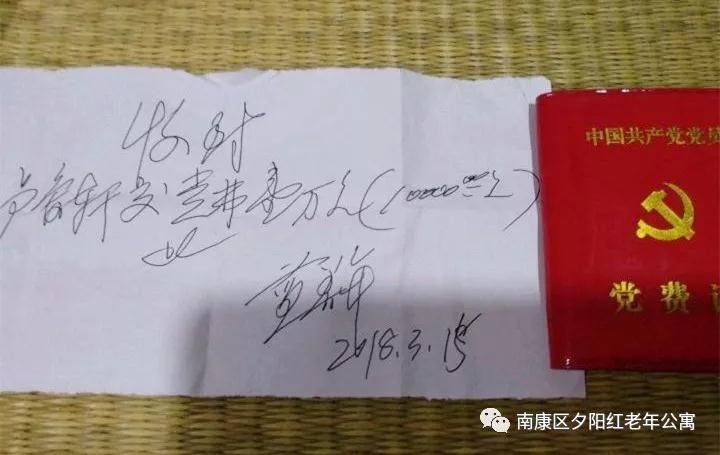 收到
卢容轩交党费壹万元(10000.00元)
此
2018.3.15号
中国共产党党员
党费证
南康区夕阳红老年公寓